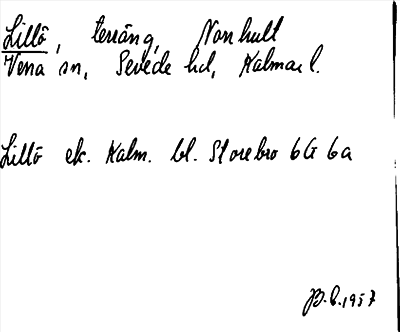 Lillö, terräng, Norrhult
Vena sn, Sevede hd, Kalmar l.
Lillö ek. Kalm. bl. Storebro 6G 6a
B.E. 1957